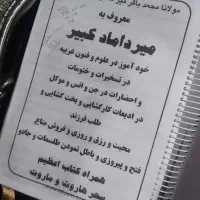 مولانا محمد باقر میر
معروف به
میر داماد کبیر
خود آموز در علوم و فنون غریبه
در تسخیرات و ختومات
و احضارات در جن و انس و موکل
در ادعیات کارگشایی و بخت گشایی و
طلب فرزند
محبت و رزق و روزی و فروش متاع
فتح و پیروزی و باطل نمودن طلسمات و جادو
همراه کتاب اعظیم
سحر هاروت و ماروت